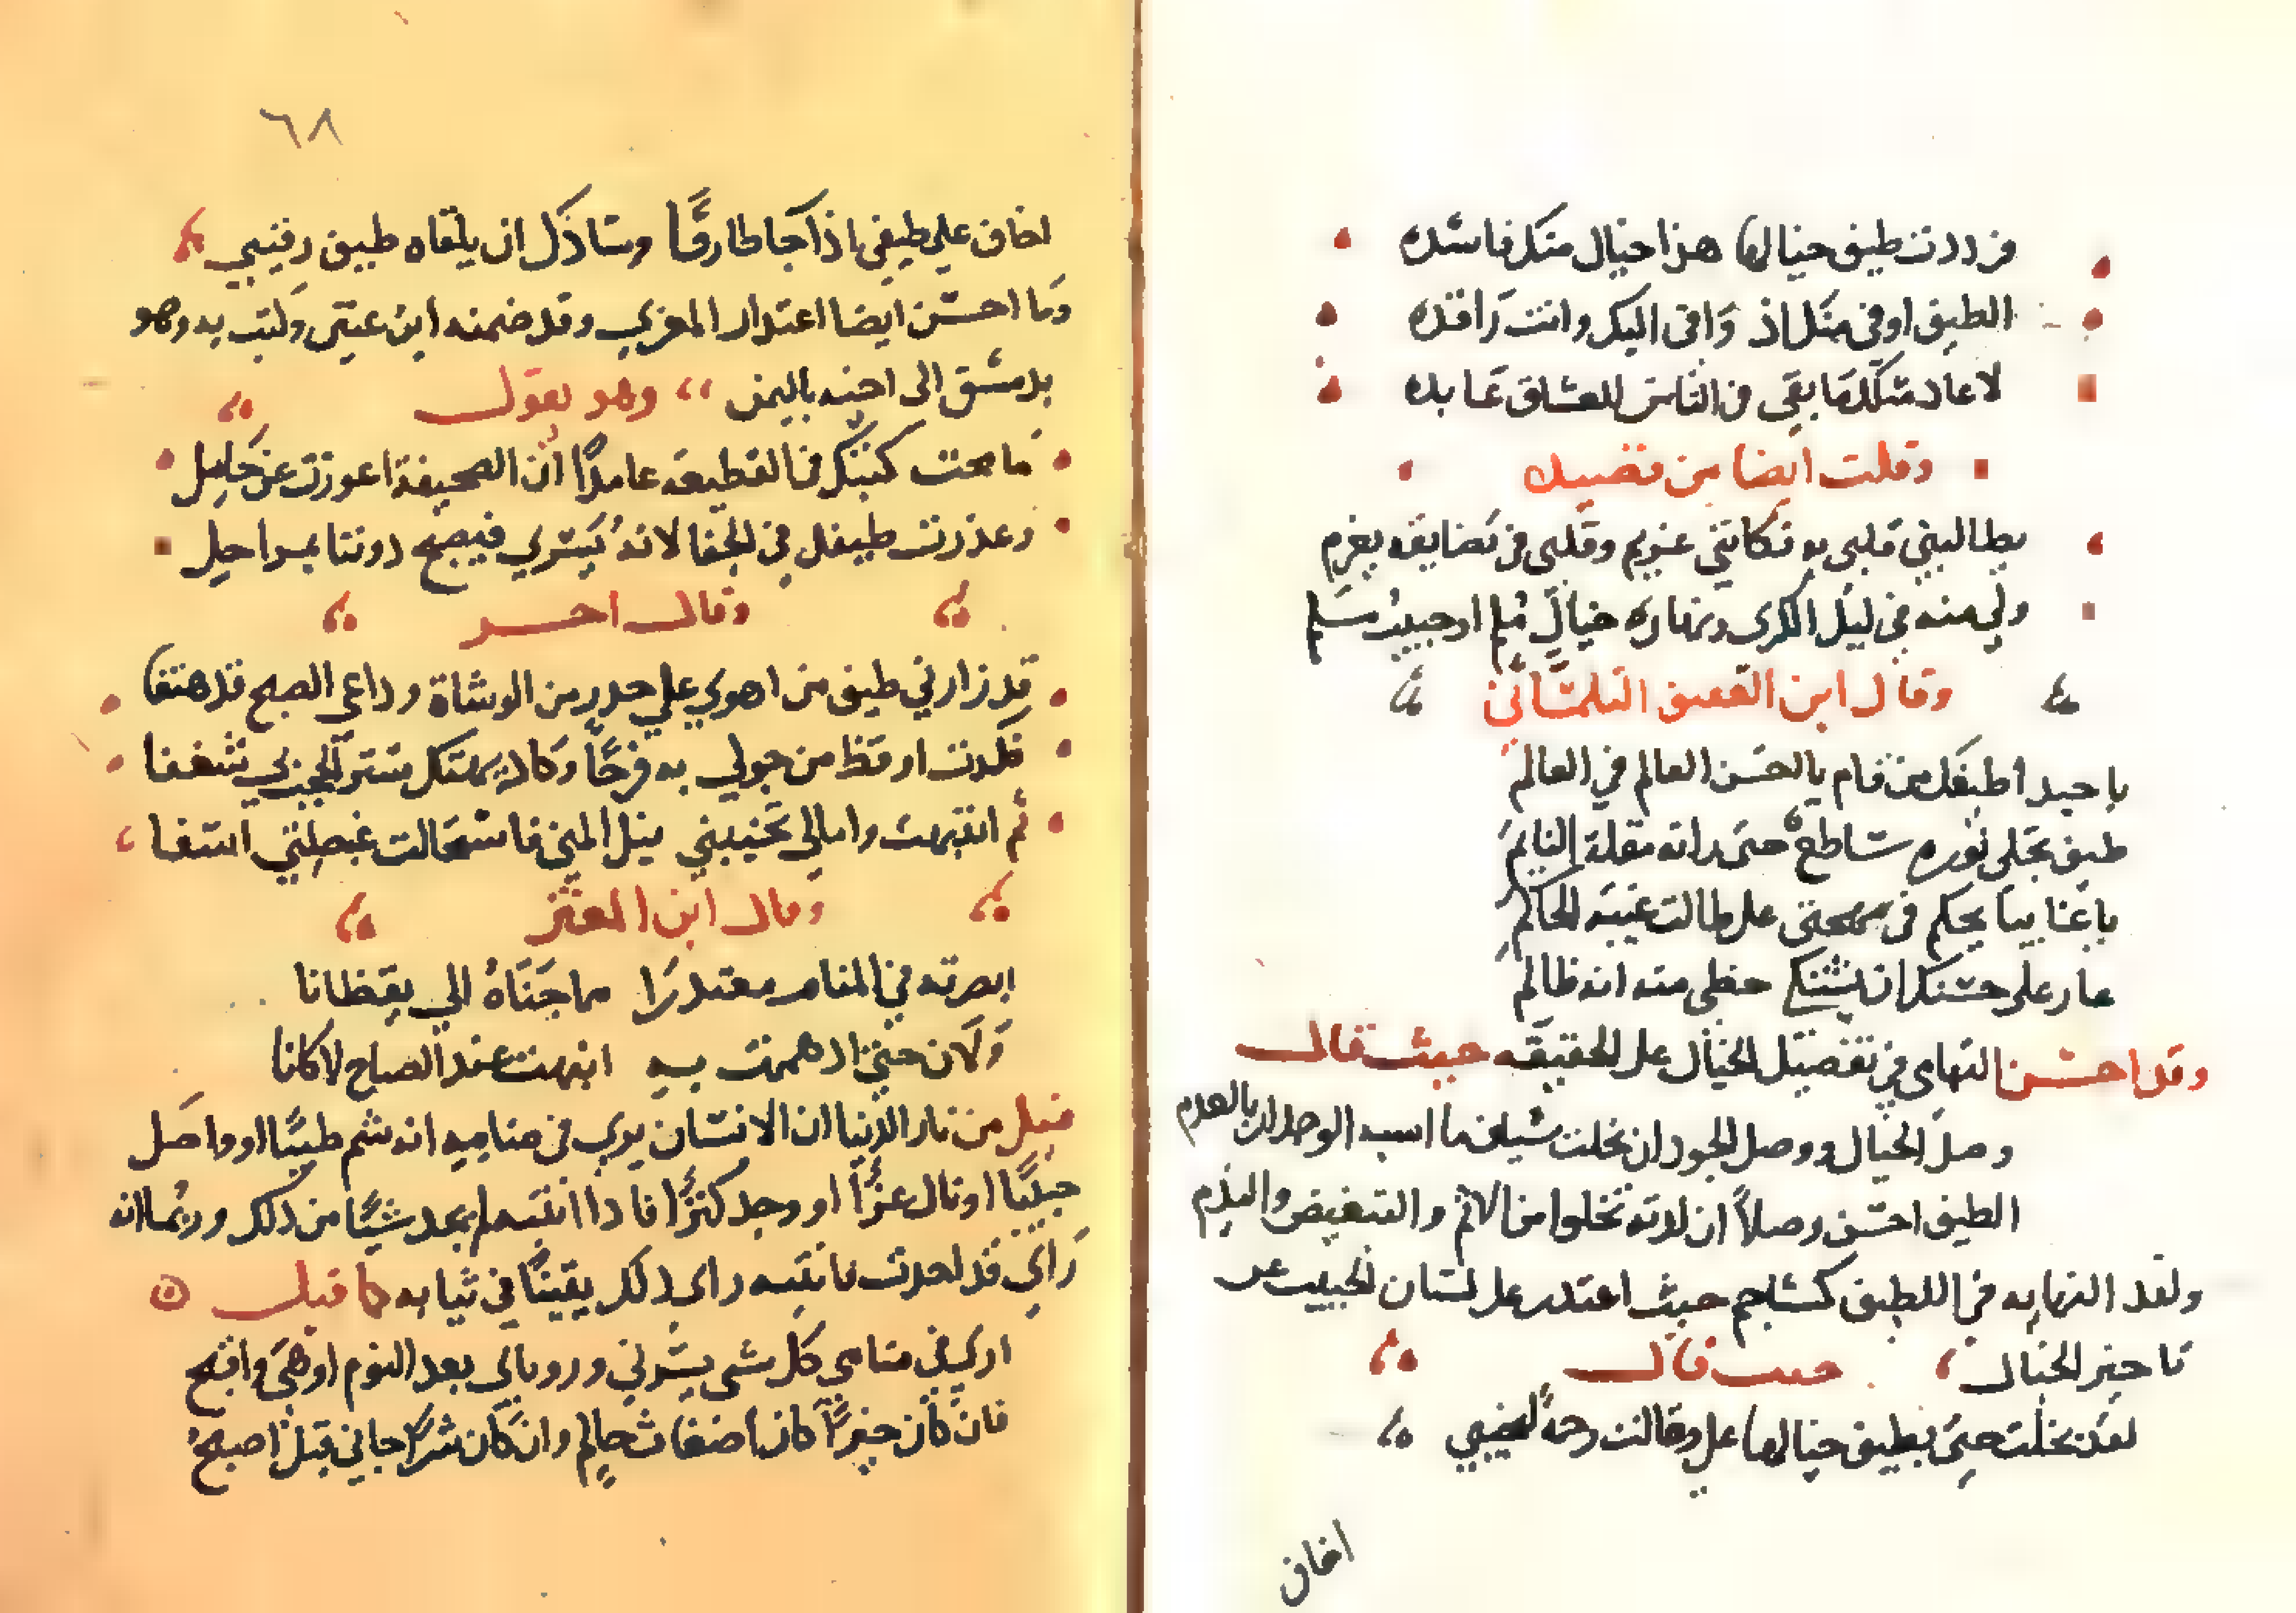 فرددت طيف خيالها هذا خيال منك فاسده
الطيف اوفى منك اذ وافى اليك وانت راقده
لا عاد مثلك ما بقى فى الناس للعشاق عابده
وقلت ايضا من قصيده
يطالبني قلبى به فكانني غريم وقلبى فى تضايقه يغرم
ولي منه في ليل الكرى ونهاره خيال ملم او حبيب مسلم
وقال ابن العفيف التلمساني
يا حبذا طيفك من قام يا احسن العالم في العالم
طيف تجلى نوره ساطع حتى راته مقلة النايم
يا غايبا يحكم فى مهجتى على طالت غيبة الحاكم
عار على حسنك ان يشتكي حظى منه انه ظالم
وقد احسن التهامى في تفضيل الخيال على الحقيقه حيث قال
وصل الخيال ووصل الخود ان بخلت سيان ما اشبه الوجدان بالعدم
الطيف احسن وصلاً ان لذته تخلوا من الاثم والتنغيص والندم
ولقد النهايه فى اللطف كشاجم حيث اعتذر على لسان الحبيب عن
تاخير الخيال حيث قال
لقد بخلت حتى بطيف خيالها على وقالت رحمة لنحيبي
اخاف
٦٨
اخاف على طيفى اذا جا طارقًا وسادك ان يلقاه طيف رقيبي
وما احسن ايضا اعتذار المغربي وقد ضمنه ابن عنين وكتب به وهو
بدمشق الى اخيه باليمن وهو يقول
سامحت كتبك فى القطيعه عامدًا ان الصحيفة اعوزت عن حامل
وعذرت طيفك فى الجفا لانه يسري فيصبح دوننا بمراحل
وقال اخر
قد زارني طيف من اهوي على حذر من الوشاة وداعي الصبح قد هتفا
فكدت اوقظ من حولي به فرحًا وكاد يهتك ستر الحب بي شغفا
ثم انتبهت وامالي تخيبني نيل المنى فاستحالت غبطتي اسفا
وقال ابن المعتز
ابصرته في المنام معتذرًا مما جناه الي يقظانا
ولان حتى اذ هممت به انبهت عند الصباح لا كانا
قيل من نار الدنيا ان الانسان يري فى منامه انه شم طيبًا او واصل
حبيبًا او نال عزًا او وجد كنزًا فاذا انتبه لم يجد شيًا من ذلك وربما انه
راي قد احدث فانتبه راي ذلك يقينًا في ثيابه كما قيل
اري في منامي كل شى يسرني ورويائي بعد النوم ادهى واقبح
فان كان خيرًا كان اضغاث حالم وان كان شرًا جاني قبل اصبح